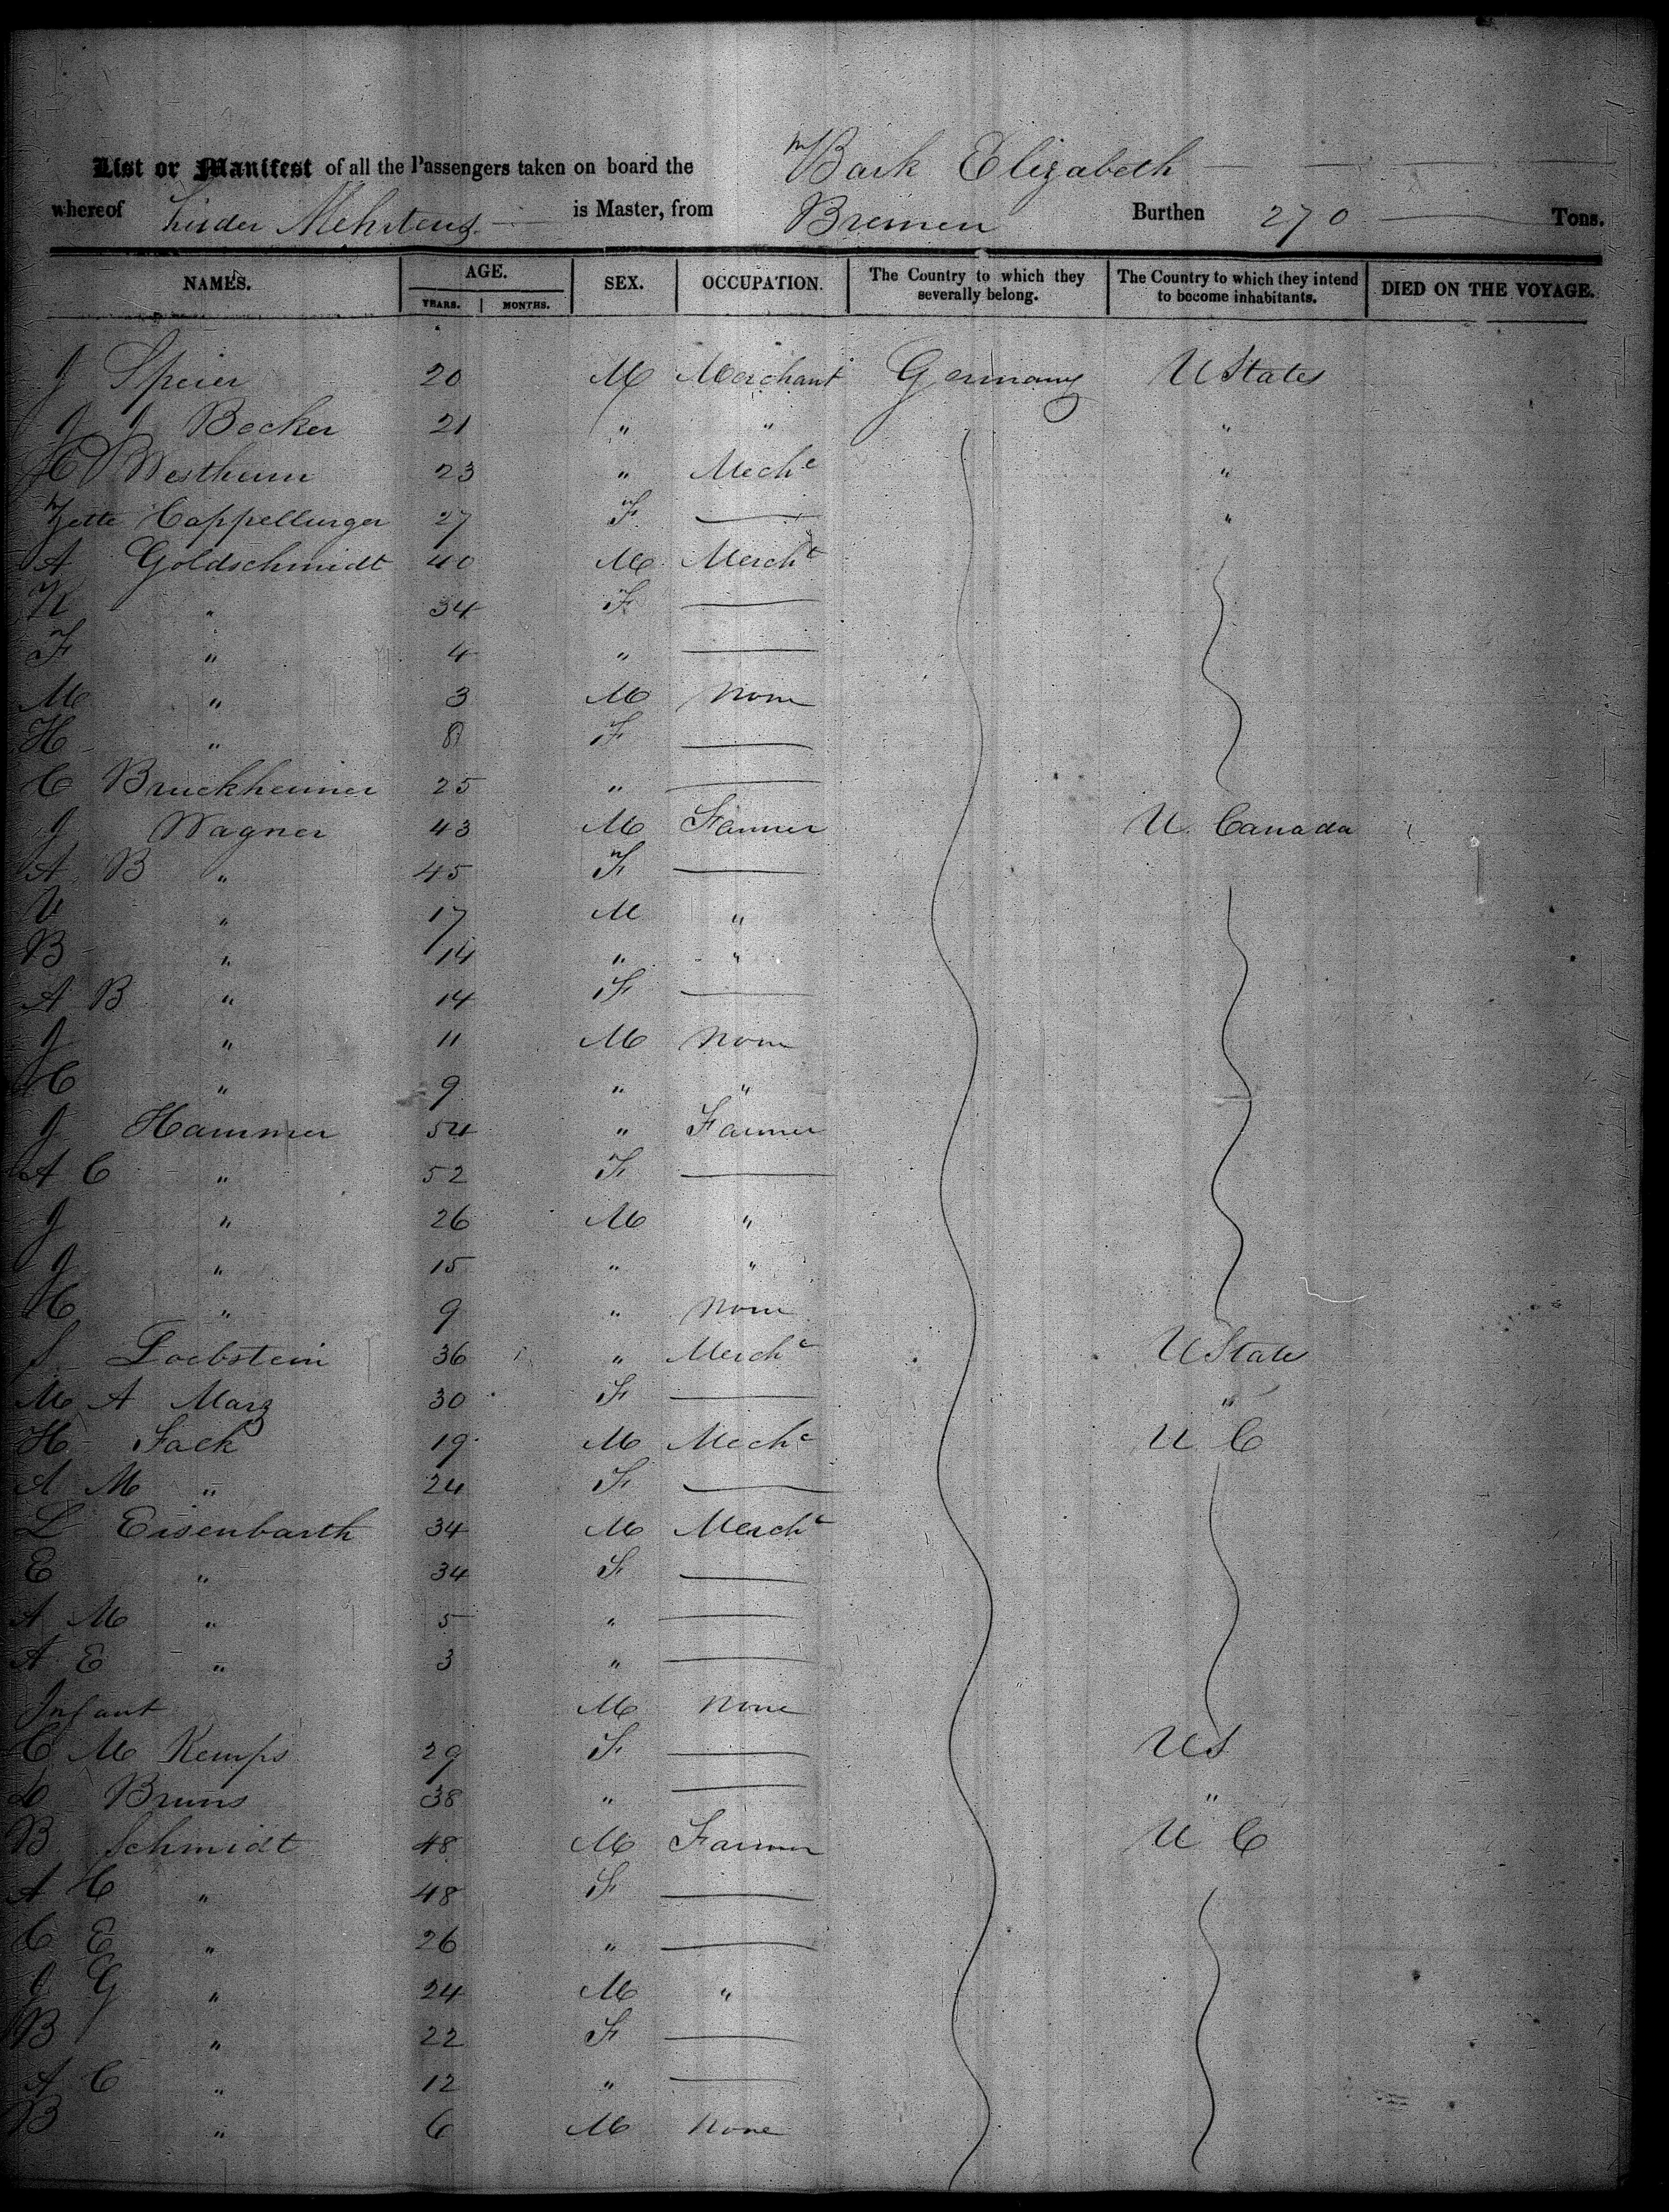 List or Manifest of all the Passengers taken on board the Bark Elizabeth
whereof Luder Mehrtens is Master, from Bremen Burthen 270 Tons.
NAMES. AGE. SEX. OCCUPATION. The Country to which they severally belong. The Country to which they intend to become inhabitants. DIED ON THE VOYAGE.
YEARS. MONTHS.
J Speier 20 M Merchant Germany U States
J J Becker 21 " " "
H Westheim 23 " Mechc "
Zette Cappellurger 27 F — "
A Goldschmidt 40 M Mercht
K " 34 F —
F " 4 " —
M " 3 M None
H " 8 F —
C Bruckheimer 25 " —
J Wagner 43 M Farmer U. Canada
A B " 45 F —
V " 17 M "
B " 14 " "
A B " 14 F —
J " 11 M None
H " 9 " "
J Hammer 54 " Farmer
A C " 52 F —
J " 26 M "
J " 15 " "
H " 9 " None
S Loebstein 36 " Mercht U State
M A Marz 30 F — "
H Fack 19 M Mechc U C
A M " 24 F —
L Eisenbarth 34 M Mercht
E " 34 F —
A M " 5 " —
A E " 3 " —
Infant M None
C M Kemps 29 F — U S
D Bruns 38 " — "
B Schmidt 48 M Farmer U C
A C " 48 F —
C E " 26 " —
J G " 24 M "
B " 22 F —
A C " 12 " —
B " 6 M None